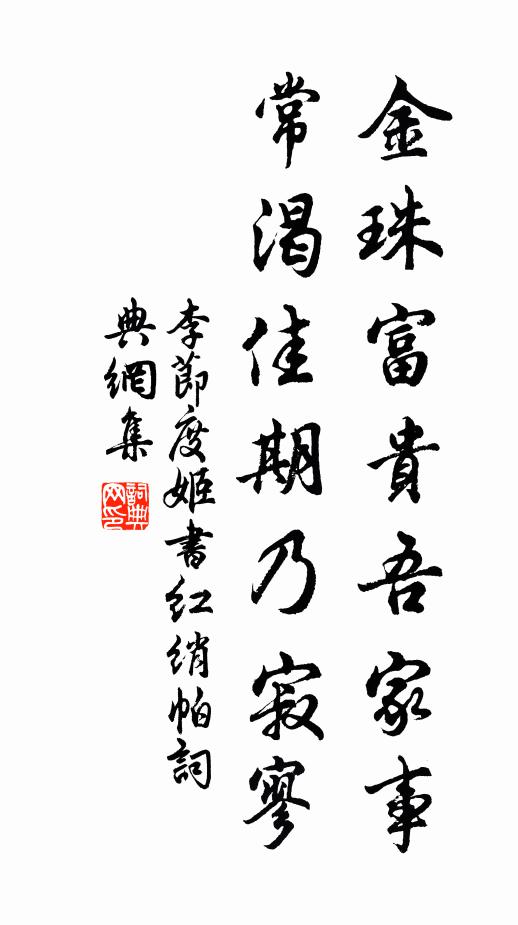 金珠富貴吾家事
常渴佳期乃寂寥
李節度姬書红綃帕詞
典網集
詞典
网印